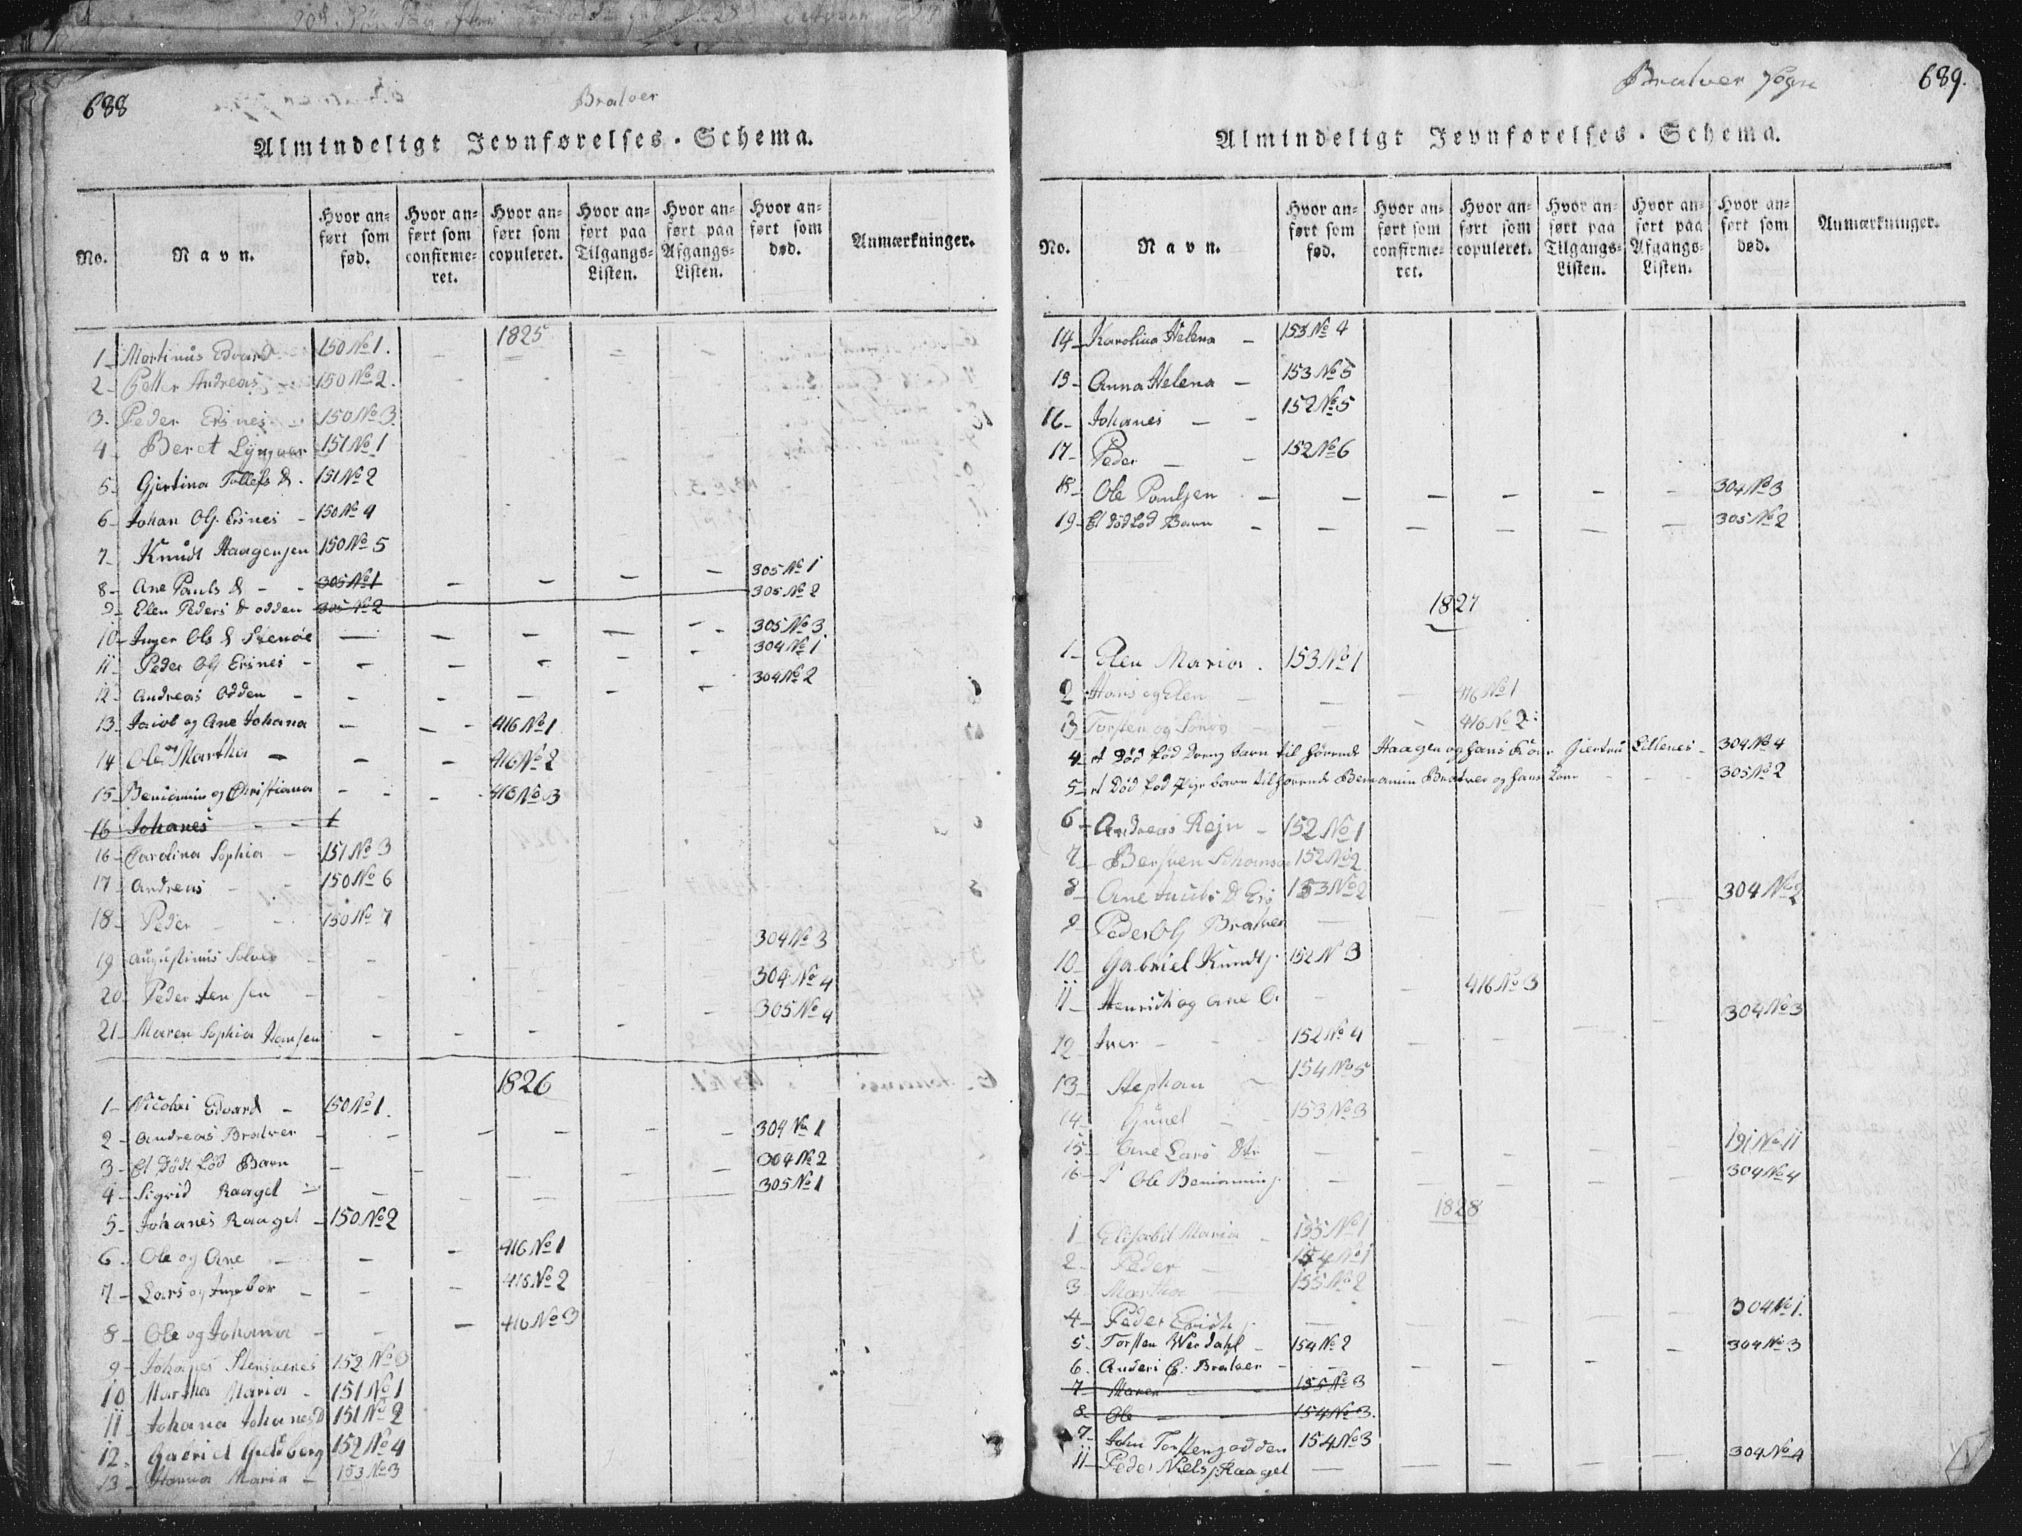 688
Bratver
Almindeligt Jevnførelses-Schema.
No.
Navn.
Hvor anført som fød.
Hvor anført som confirmeret.
Hvor anført som copuleret.
Hvor anført paa Tilgangs-Listen.
Hvor anført paa Afgangs-Listen.
Hvor anført som død.
Anmærkninger.
1825
1 Martinus Edvard 150 No 1.
2 Petter Andreas 150 No 2.
3. Peder Ersnes 150 No 3.
4 Beret Lyngver 151 No 1
5 Gjertina Tollefs D. 151 No 2
6 Johan Ols. Ersnes 150 No 4
7 Knudt Haagensen 150 No 5
8 Ane Pauls D 305 No 1 305 No 1
9 Elen Peders D odden 305 No 2 305 No 2
10 Inger Ols D 305 No 3
11 Peder Ols Ersnes 304 No 1
12 Andreas Odden 304 No 2
13 Jacob og Ane Johana 416 No 1
14 Ole og Martha 416 No 2
15 Beniamin og Christiana 416 No 3
16 Johanes
16 Carolina Sophia 151 No 3
17 Andreas 150 No 6
18 Peder 150 No 7
19 Augustinus 304 No 3
20 Peder Jensen 304 No 4
21 Maren Sophia Hansen 305 No 4
1826
1 Nicolai Edvard 150 No 1.
2 Andreas Bratver 304 No 1
3 Et Dødt Fød Barn 304 No 2
4 Sigrid Raaget 305 No 1
5 Johanes Raaget 150 No 2
6 Ole og Ane 416 No 1
7 Lars og Ingebor 416 No 2
8 Ole og Johana 416 No 3
9 Johanes Stensvenes 152 No 3
10 Martha Maria 151 No 1
11 Johana Johanes D 151 No 2
12 Gabriel Guldberg 152 No 4
13 Hanna Maria 153 No 3
689.
Bratver Sogn
Almindeligt Jevnførelses-Schema.
No.
Navn.
Hvor anført som fød.
Hvor anført som confirmeret.
Hvor anført som copuleret.
Hvor anført paa Tilgangs-Listen.
Hvor anført paa Afgangs-Listen.
Hvor anført som død.
Anmærkninger.
14 Karolina Helena 153 No 4
15 Anna Helena 153 No 5
16 Johanes 152 No 5
17 Peder 152 No 6
18 Ole Paulsen 304 No 3
19 Et død Fød Barn 305 No 2
1827
1 Elen Maria 153 No 1
2 Hans og Elen 416 No 1
3 Torsten og 416 No 2
4 et Død Fød Dreng barn til hørende Haagen og hans Kone Giertru Lillenes 304 No 4
5 et Død Fød Pige barn tilhørende Beniamin Bratver og hans Kone 305 No 2
6 Andreas Rejn 152 No 1
7 152 No 2
8 Ane Jacobs D Ers 153 No 2
9 Peder Ols Bratver 304 No 2
10 Gabriel Knudts. 152 N 3
11 Henrich og Ane C. 416 No 3
304 No 3
12 Iver 152 No 4
13 Stephan 154 No 5
14 Gunel 153 No 3
15 Ane Lars Dtr 191 No 11
16 Ole Beniamins. 304 No 4
1828
1 Elisabet Maria 155 No 1
2 Peder 154 No 1
3 Martha 155 No 2
4 Peder 304 No 1.
5 Torsten Werdahl 154 No 2
6. Anders C. Bratver 304 No 3
7 Maren 155 No 3
8 Ole 154 No 3.
7 John Torstens odden 154 No 3
11 Peder Niels. Raaget 304 No 4